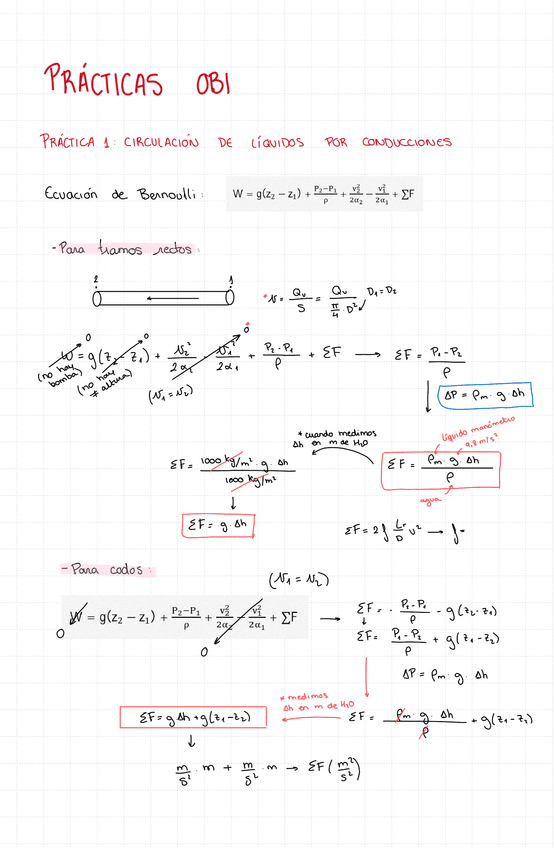 PRÁCTICAS OBI
PRÁCTICA 1: CIRCULACIÓN DE LÍQUIDOS POR CONDUCCIONES
Ecuación de Bernoulli: W = g(z₂ − z₁) + P₂−P₁/ρ + v₂²/2α₂ − v₁²/2α₁ + ∑F
-Para tramos rectos:
2 1
*v = Qv/S = Qv/(π/4 · D²) D₁ = D₂
W = g(z₂ - z₁) + v₂²/2α₂ - v₁²/2α₁ + P₂-P₁/ρ + ΣF → ΣF = P₁-P₂/ρ
0 0 *0
(no hay bomba) (no hay ≠ altura) (v₁ = v₂)
ΔP = ρm · g · Δh
*cuando medimos Δh en m de H₂O
líquido manómetro
9,8 m/s²
ΣF = 1000 kg/m² · g · Δh / 1000 kg/m²
ΣF = ρm · g · Δh / ρ
agua
ΣF = g · Δh
ΣF = 2f L/D v² → f=
-Para codos:
(v₁ = v₂)
W = g(z₂ − z₁) + P₂−P₁/ρ + v₂²/2α₂ − v₁²/2α₁ + ∑F →
0 0
ΣF = - P₂-P₁/ρ - g(z₂-z₁)
ΣF = P₁-P₂/ρ + g(z₁-z₂)
ΔP = ρm · g · Δh
* medimos Δh en m de H₂O
ΣF = g Δh + g(z₁-z₂)
ΣF = ρm · g · Δh / ρ + g(z₁-z₂)
m/s² · m + m/s² · m → ΣF (m²/s²)